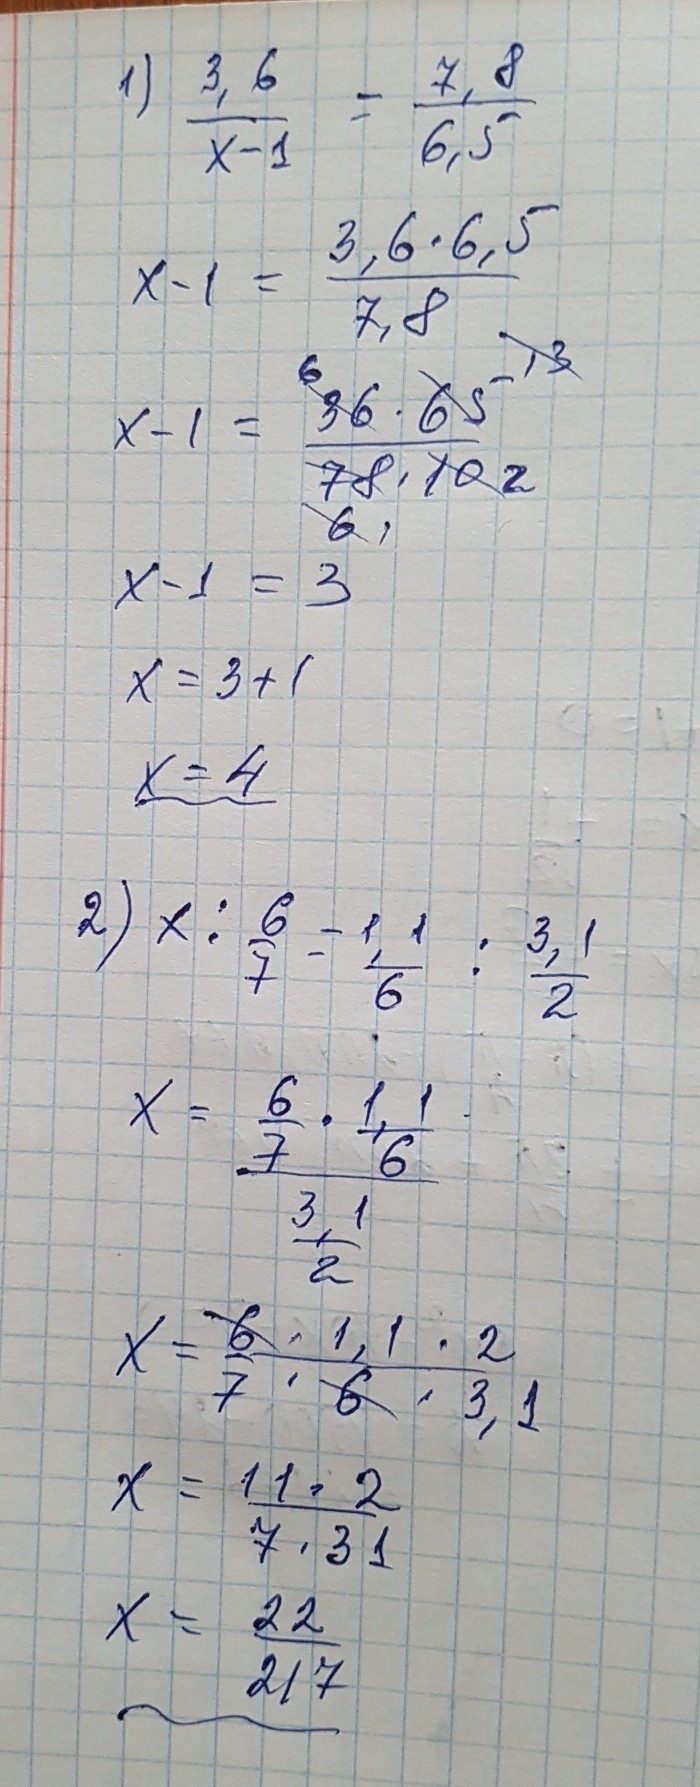 1) 3,6 / x-1 = 7,8 / 6,5
x-1 = 3,6·6,5 / 7,8
x-1 = 36·65 / 78·10 6 13 6 2
x-1 = 3
x = 3+1
x = 4
2) x : 6/7 = 1,1/6 : 3,1/2
x = 6/7 · 1,1/6 / 3,1/2
x = 6 · 1,1 · 2 / 7 · 6 · 3,1
x = 11 · 2 / 7 · 31
x = 22 / 217